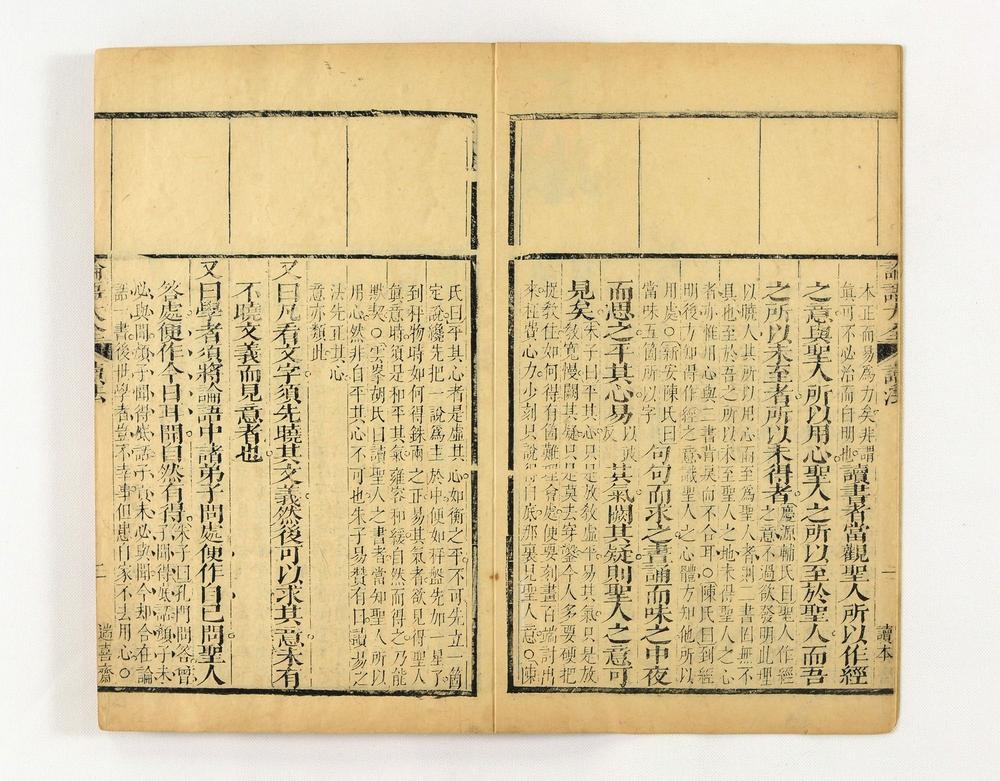 論語大全 讀法 一 讀本
本正而易為力矣非謂
眞可不必治而自明也
讀書者當觀聖人所以作經
之意與聖人所以用心聖人之所以至於聖人而吾
之所以未至者所以未得者
慶源輔氏曰聖人作經
之意不過欲發明此理
以曉人其所以用心而至為聖人者則二書固無不
具也至於吾之所以未至聖人之地未得聖人之心
者亦惟用心與二書背戾而不合耳○陳氏曰到經
明後方知得作經之意識聖人之心體方知他所以
用處○新安陳氏曰
當味互箇所以字
句句而求之晝誦而味之中夜
而思之平其心易
以豉
反
其氣闕其疑則聖人之意可
見矣
朱子曰平其心只是放教虛平易其氣只是放
教寬慢闕其疑只是莫去穿鑿今人多要硬把
捉教住如何得有箇難理會處便要刻畫百端討出
來枉費心力少刻只說得自底那裏見聖人意○陳
氏曰平其心者是虛其心如衡之平不可先立一箇
定說纔先把一說為主於中便如秤盤先加一星了
到秤物時如何得銖兩之正易其氣者欲見得聖人
眞意時須是和平其氣雍容和緩自然而得之乃能
默契○雲峯胡氏曰讀聖人之書者當知聖人所以
用心然非自平其心不可也朱子易贊有曰讀易之
法先正其心
意亦類此
又曰凡看文字須先曉其文義然後可以求其意未有
不曉文義而見意者也
又曰學者須將論語中諸弟子問處便作自己問聖人
答處便作今日耳聞自然有得
朱子曰孔門問答曾
子聞得底話顏子未
必與聞顏子聞得底話子貢未必與聞今却合在論
語一書後世學者豈不幸事但患自家不去用心○
論語大全 讀法 二 遄喜齋